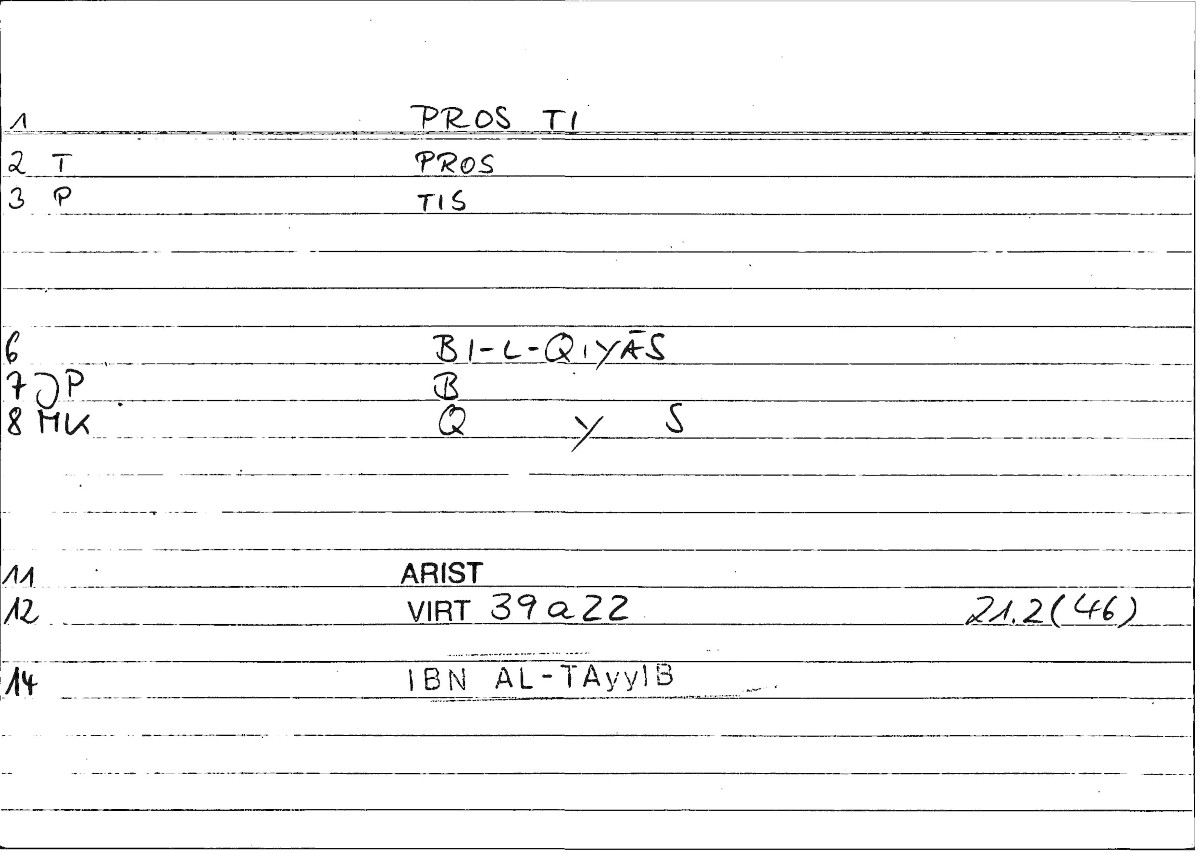 1 PROS TI
2 T PROS
3 P TIS
6 BI-L-QIYĀS
7 JP B
8 MK Q Y S
11 ARIST
12 VIRT 39a22 21.2(46)
14 IBN AL-TAyyIB